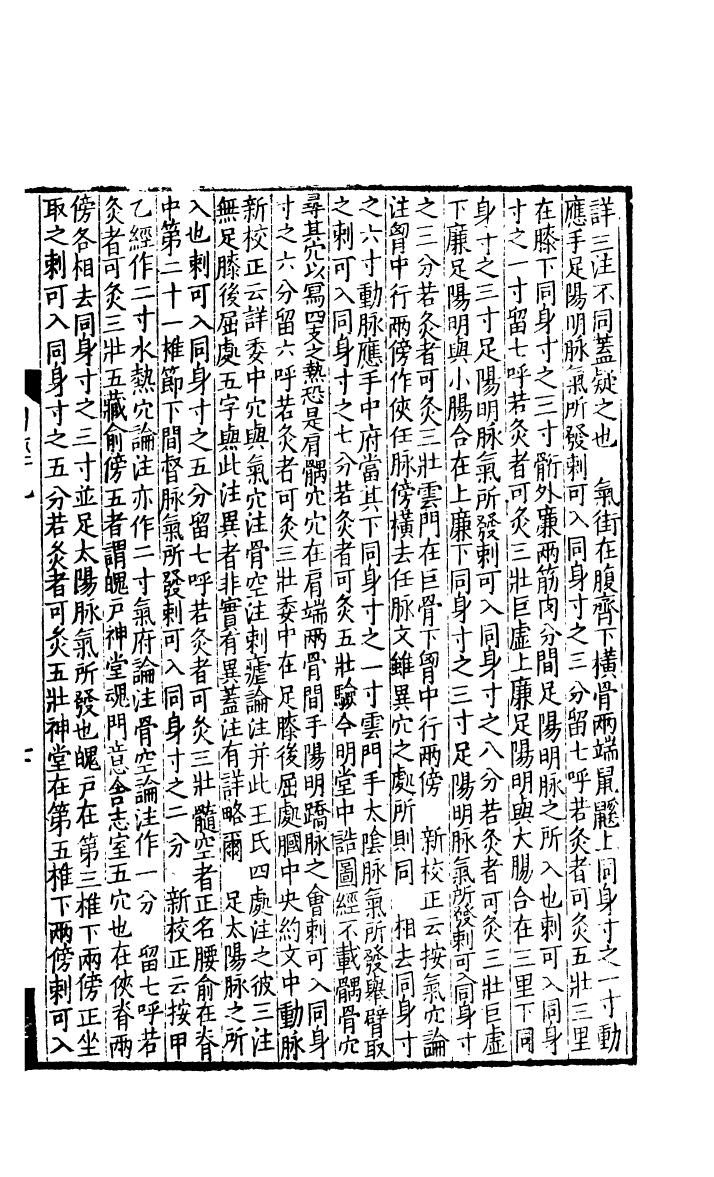 詳三注不同蓋疑之也　氣街在腹齊下橫骨兩端鼠鼷上同身寸之一寸動
應手足陽明脉氣所發刺可入同身寸之三分留七呼若灸者可灸五壯三里
在膝下同身寸之三寸䯒外廉兩筋肉分間足陽明脉之所入也刺可入同身
寸之一寸留七呼若灸者可灸三壯巨虛上廉足陽明與大腸合在三里下同
身寸之三寸足陽明脉氣所發刺可入同身寸之八分若灸者可灸三壯巨虛
下廉足陽明與小腸合在上廉下同身寸之三寸足陽明脉氣所發刺可入同身寸
之三分若灸者可灸三壯雲門在巨骨下胷中行兩傍　新校正云按氣穴論
注胷中行兩傍作俠任脉傍橫去任脉文雖異穴之處所則同　相去同身寸
之六寸動脉應手中府當其下同身寸之一寸雲門手太陰脉氣所發舉臂取
之刺可入同身寸之七分若灸者可灸五壯驗今明堂中誥圖經不載髃骨穴
尋其穴以寫四支之熱恐是肩髃穴穴在肩端兩骨間手陽明蹻脉之會刺可入同身
寸之六分留六呼若灸者可灸三壯委中在足膝後屈處膕中央約文中動脉
新校正云詳委中穴與氣穴注骨空注刺瘧論注并此王氏四處注之彼三注
無足膝後屈處五字與此注異者非實有異蓋注有詳略爾　足太陽脉之所
入也刺可入同身寸之五分留七呼若灸者可灸三壯髓空者正名腰俞在脊
中第二十一椎節下間督脉氣所發刺可入同身寸之二分　新校正云按甲
乙經作二寸水熱穴論注亦作二寸氣府論注骨空論注作一分　留七呼若
灸者可灸三壯五藏俞傍五者謂魄戸神堂魂門意舍志室五穴也在俠脊兩
傍各相去同身寸之三寸並足太陽脉氣所發也魄戸在第三椎下兩傍正坐
取之刺可入同身寸之五分若灸者可灸五壯神堂在第五椎下兩傍刺可入